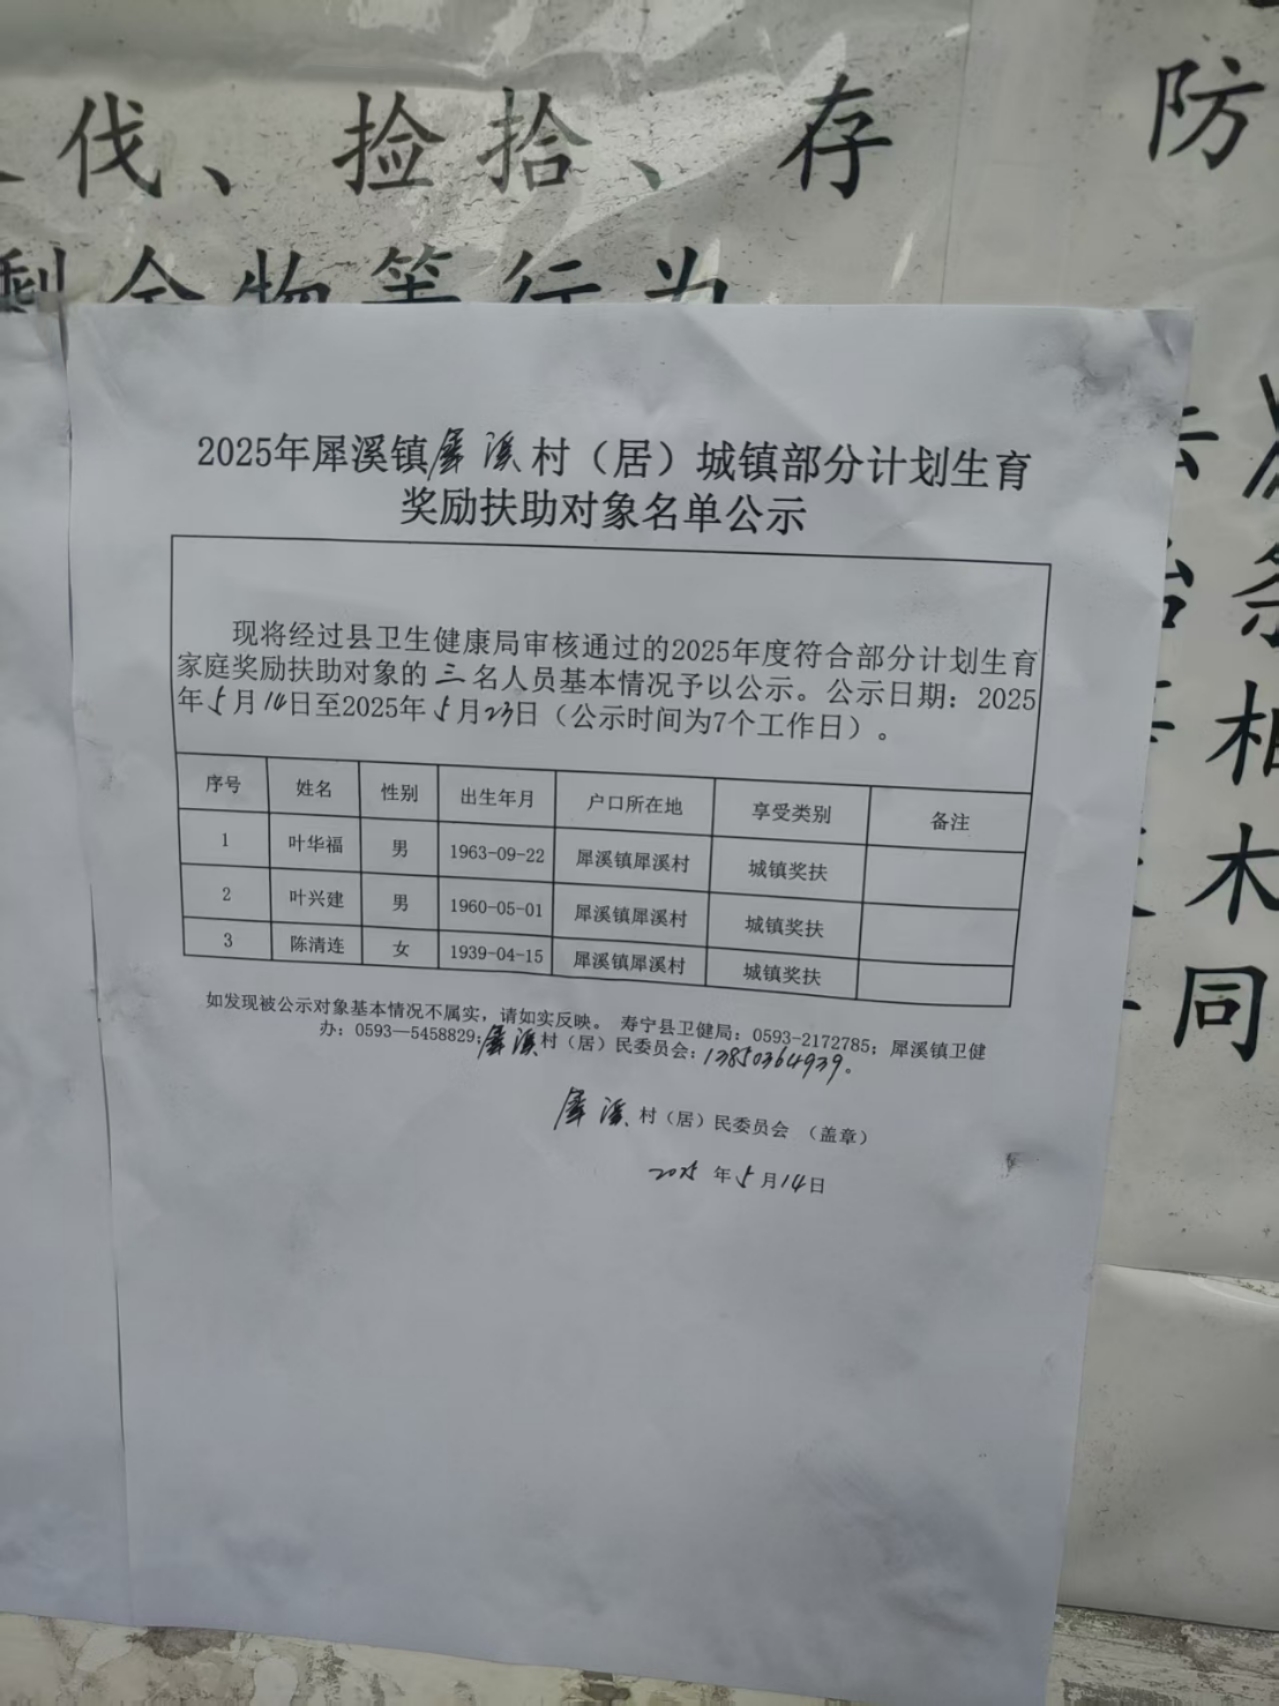 伐、捡拾、存
防
剩余物等行为
条
相
木
同
2025年犀溪镇犀溪村（居）城镇部分计划生育
奖励扶助对象名单公示
现将经过县卫生健康局审核通过的2025年度符合部分计划生育
家庭奖励扶助对象的三名人员基本情况予以公示。公示日期：2025
年5月14日至2025年5月23日（公示时间为7个工作日）。
序号 姓名 性别 出生年月 户口所在地 享受类别 备注
1 叶华福 男 1963-09-22 犀溪镇犀溪村 城镇奖扶
2 叶兴建 男 1960-05-01 犀溪镇犀溪村 城镇奖扶
3 陈清连 女 1939-04-15 犀溪镇犀溪村 城镇奖扶
如发现被公示对象基本情况不属实，请如实反映。 寿宁县卫健局：0593-2172785；犀溪镇卫健
办：0593—5458829；犀溪村（居）民委员会：13850364939。
犀溪村（居）民委员会 （盖章）
2025年5月14日